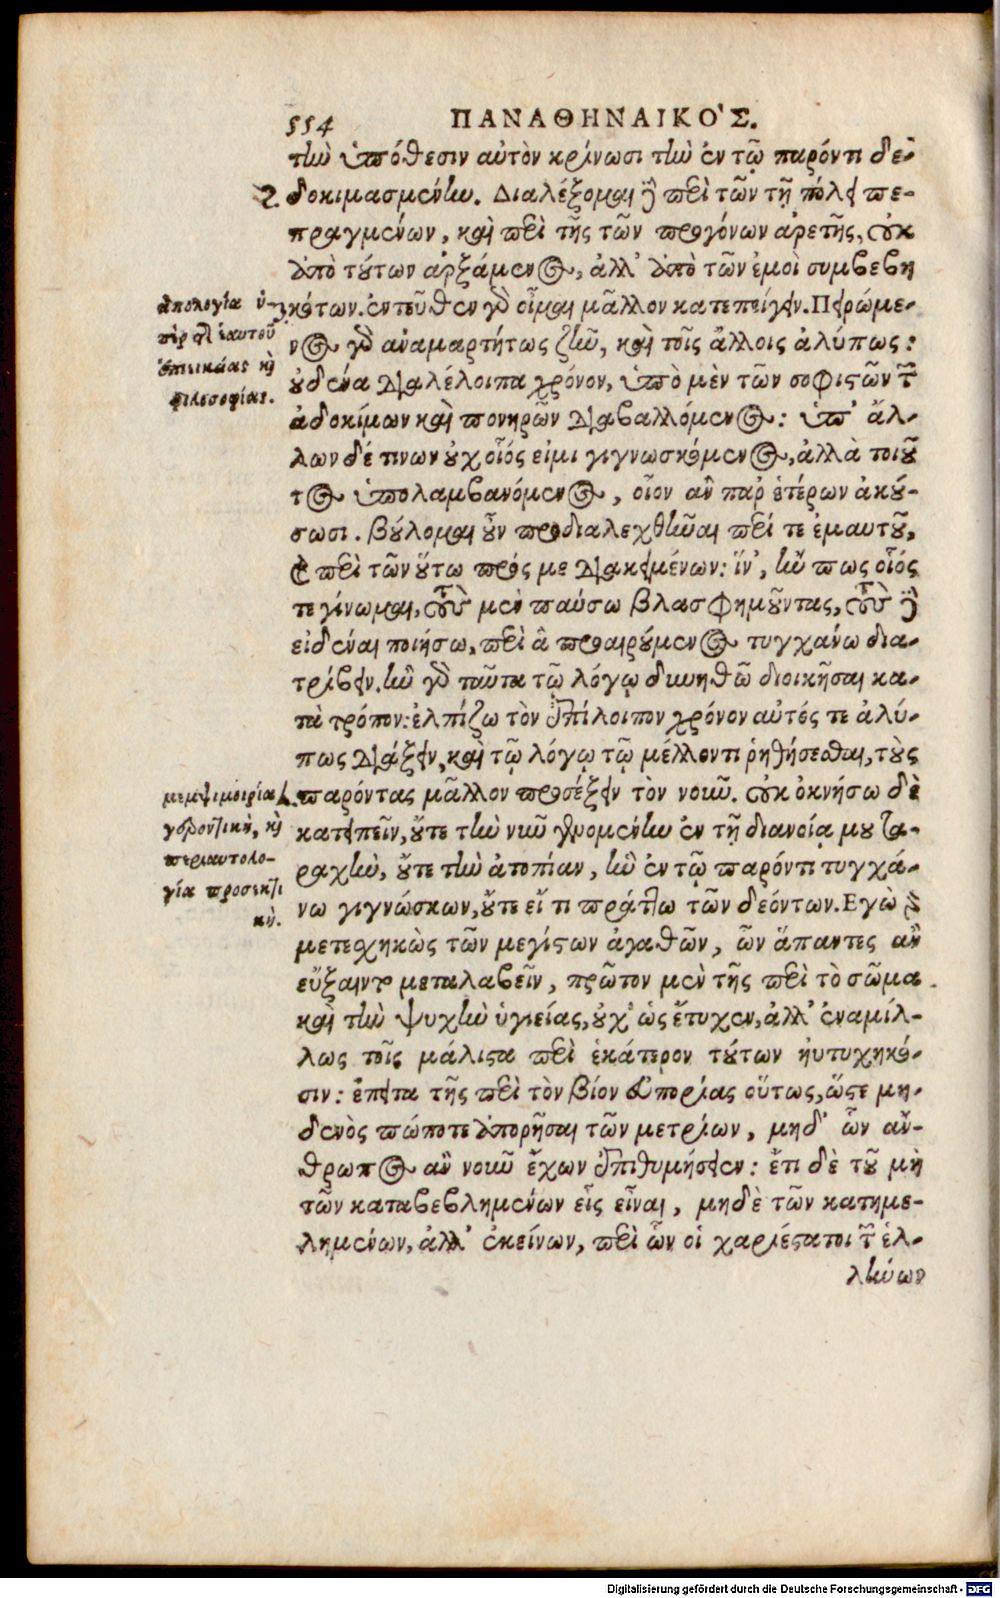 554 ΠΑΝΑΘΗΝΑΙΚΟ'Σ.
τὴν ὑπόθεσιν αὐτὸν κρίνωσι τὴν ἐν τῷ παρόντι δε-
2. δοκιμασμένην. Διαλέξομαι ἢ περὶ τῶν τῇ πόλει πε-
πραγμένων, καὶ περὶ τῆς τῶν προγόνων ἀρετῆς, οὐκ
ἀπὸ τούτων ἀρξάμενος, ἀλλ' ἀπὸ τῶν ἐμοὶ συμβεβη
3. κότων. ἐντεῦθεν γὰρ οἶμαι μᾶλλον κατεπείγειν. Πειρώμε-
νος γὰρ ἀναμαρτήτως ζῆν, καὶ τοῖς ἄλλοις ἀλύπως:
οὐδένα διαλέλοιπα χρόνον, ὑπὸ μὲν τῶν σοφιστῶν τῶν
ἀδοκίμων καὶ πονηρῶν διαβαλλόμενος: ὑπ' ἄλ-
λων δέ τινων οὐχ οἷός εἰμι γιγνωσκόμενος, ἀλλὰ τοιοῦ
τος ὑπολαμβανόμενος, οἷον ἂν παρ' ἑτέρων ἀκού-
σωσι. βούλομαι οὖν προδιαλεχθῆναι περί τε ἐμαυτοῦ,
καὶ περὶ τῶν οὕτω πρός με διακειμένων: ἵν', ἤν πως οἷός
τε γίνωμαι, τοὺς μὲν παύσω βλασφημοῦντας, τοὺς δὲ
εἰδέναι ποιήσω, περὶ ἃ προαιρούμενος τυγχάνω δια-
τρίβειν. ἢν γὰρ ταῦτα τῷ λόγῳ δυνηθῶ διοικῆσαι κα-
τὰ τρόπον: ἐλπίζω τὸν ἐπίλοιπον χρόνον αὐτός τε ἀλύ-
πως διάξειν, καὶ τῷ λόγῳ τῷ μέλλοντι ῥηθήσεσθαι, τοὺς
4. παρόντας μᾶλλον προσέξειν τὸν νοῦν. οὐκ ὀκνήσω δὲ
κατειπεῖν, οὔτε τὴν νῦν ἐγγινομένην ἐν τῇ διανοίᾳ μου τα-
ραχὴν, οὔτε τὴν ἀτοπίαν, ἣν ἐν τῷ παρόντι τυγχά-
νω γιγνώσκων, οὔτε εἴ τι πράττω τῶν δεόντων. Εγὼ γὰρ
μετεσχηκὼς τῶν μεγίστων ἀγαθῶν, ὧν ἅπαντες ἂν
εὔξαιντο μεταλαβεῖν, πρῶτον μὲν τῆς περὶ τὸ σῶμα
καὶ τὴν ψυχὴν ὑγιείας, οὐχ' ὡς ἔτυχεν, ἀλλ' ἐναμίλ-
λως τοῖς μάλιστα περὶ ἑκάτερον τούτων ηὐτυχηκό-
σιν: ἔπειτα τῆς περὶ τὸν βίον εὐπορίας οὕτως, ὥστε μη-
δενὸς πώποτε ἀπορῆσαι τῶν μετρίων, μηδ' ὧν ἄν-
θρωπος ἂν νοῦν ἔχων ἐπιθυμήσειεν: ἔτι δὲ τοῦ μὴ
τῶν καταβεβλημένων εἷς εἶναι, μηδὲ τῶν κατημε-
λημένων, ἀλλ' ἐκείνων, περὶ ὧν οἱ χαριέστατοι τῶν ἑλ-
λήνων
ἀπολογία ὑ-
πὲρ τῆς ἑαυτοῦ
ἐπιεικείας καὶ
φιλοσοφίας.
μεμψιμοιρία
γεροντικὴ, καὶ
περιαυτολο-
γία προσεκτι
κή.
Digitalisierung gefördert durch die Deutsche Forschungsgemeinschaft - DFG